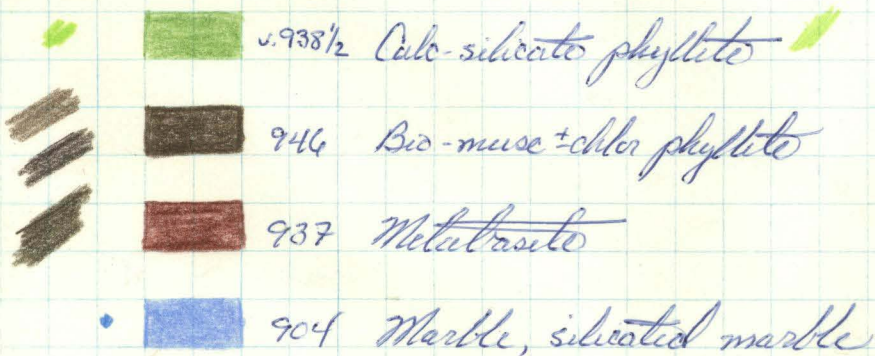 v.938½ Calc-silicate phyllite
946 Bio-musc ± chlor phyllite
937 Metabasite
904 Marble, silicated marble